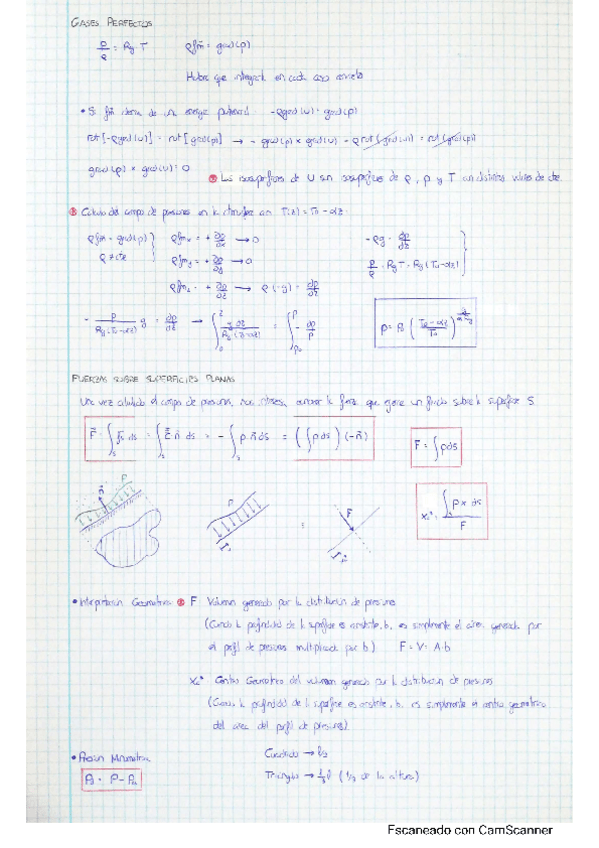 GASES PERFECTOS
p/ρ = Rg·T    ρf̄m = grad(p)
Habrá que integrarla en cada caso concreto
• Si f̄m deriva de una energía potencial: -ρgrad(U) = grad(p)
rot[-ρgrad(U)] = rot[grad(p)] → - grad(ρ) × grad(U) - ρ rot(grad(U)) = rot(grad(p))
grad(ρ) × grad(U) = 0
Las superficies de U son superficies de ρ, p y T con distintos valores de cte.
Cálculo del campo de presiones en la atmósfera con T(z) = T0 - αz:
ρf̄m = grad(p)    ρfmx = + ∂p/∂x → 0    -ρg = dp/dz
ρ ≠ cte    ρfmy = + ∂p/∂y → 0    p/ρ = Rg·T = Rg(T0-αz)
ρfmz = + ∂p/∂z → ρ(-g) = dp/dz
- p/(Rg(T0-αz)) g = dp/dz → ∫
FUERZAS SOBRE SUPERFICIES PLANAS
Una vez calculado el campo de presiones, nos interesa conocer la fuerza que ejerce un fluido sobre la superficie S.
= - ∫s p n̄ ds = (∫ p ds)(-n̄)    F = ∫ pds
n̄    p    p    F    ∫ p x ds / F
• Interpretación Geométrica F Volumen generado por la distribución de presiones
(Cuando la profundidad de la superficie es constante, b, es simplemente el área generada por
el perfil de presiones multiplicada por b)    F = V = A·b
Centro Geométrico del volumen generado por la distribución de presiones
(Cuando la profundidad de la superficie es constante, b, es simplemente el centro geométrico
del área del perfil de presiones).
• Presión Manométrica    Cuadrado → l/2
P - Pa    Triángulo → 1/3 l (1/3 de la altura)
Escaneado con CamScanner